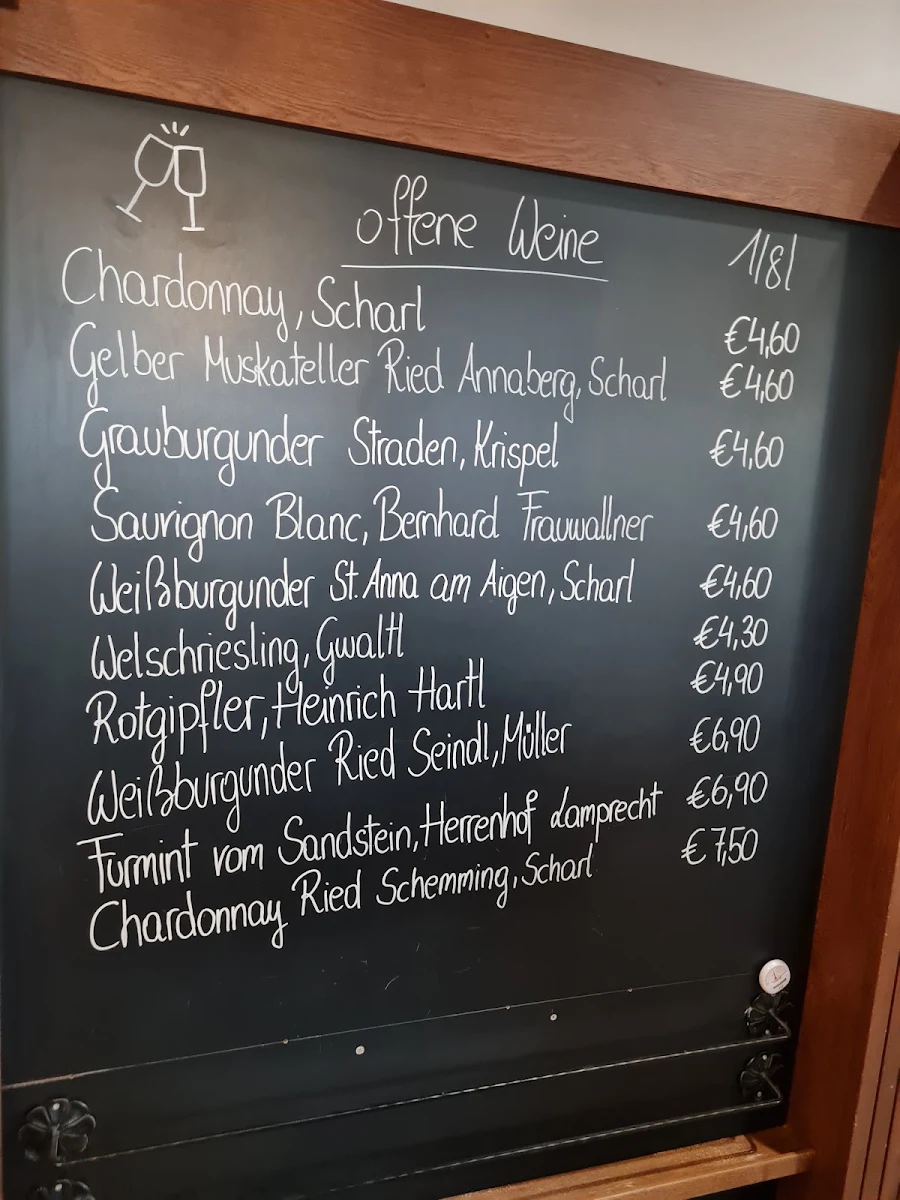 offene Weine 1/8l
Chardonnay, Scharl €4,60
Gelber Muskateller Ried Annaberg, Scharl €4,60
Grauburgunder Straden, Krispel €4,60
Sauvignon Blanc, Bernhard Frauwallner €4,60
Weißburgunder St. Anna am Aigen, Scharl €4,60
Welschriesling, Gwaltl €4,30
Rotgipfler, Heinrich Hartl €4,90
Weißburgunder Ried Seindl, Müller €6,90
Furmint vom Sandstein, Herrenhof Lamprecht €6,90
Chardonnay Ried Schemming, Scharl €7,50